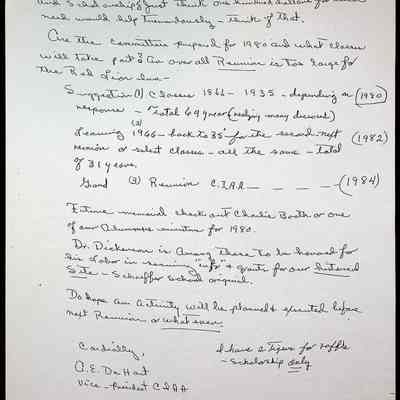 and Scholarship just think one hundred dollars for each
need would help tremendously - think of that.
Are the Committees prepared for 1980 and what classes
will take part? An over all Reunion is too large for
the Red Lion Inn -
Suggestion (1) Classes 1866 - 1935 - depending on (1980)
response - Total 69 year (realizing many deceased)
(2)
Leaving 1966 - back to 35 for the second - next (1982)
reunion or select classes - all the same - Total
of 31 years.
Grand (3) Reunion C.I.A.A. - - - - (1984)
Future - memorial check out Charlie Booth or one
of our Alumnus ministers for 1980.
Dr. Dickerson is among those to be honored for
his labor in securing "info" & grants for our historical
Site - Schaeffer School original.
Do hope an activity will be planned & executed before
next Reunion or what ever.
Cordially,
A. E. De Hart
Vice-President C I A A
I have 2 Tigers for raffle
- Scholarship only